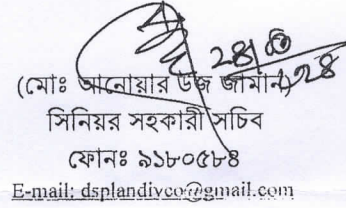 (মোঃ আনোয়ার উজ জামান)
সিনিয়র সহকারী সচিব
ফোনঃ ৯১৮০৫৮৪
E-mail: dsplandivco@gmail.com